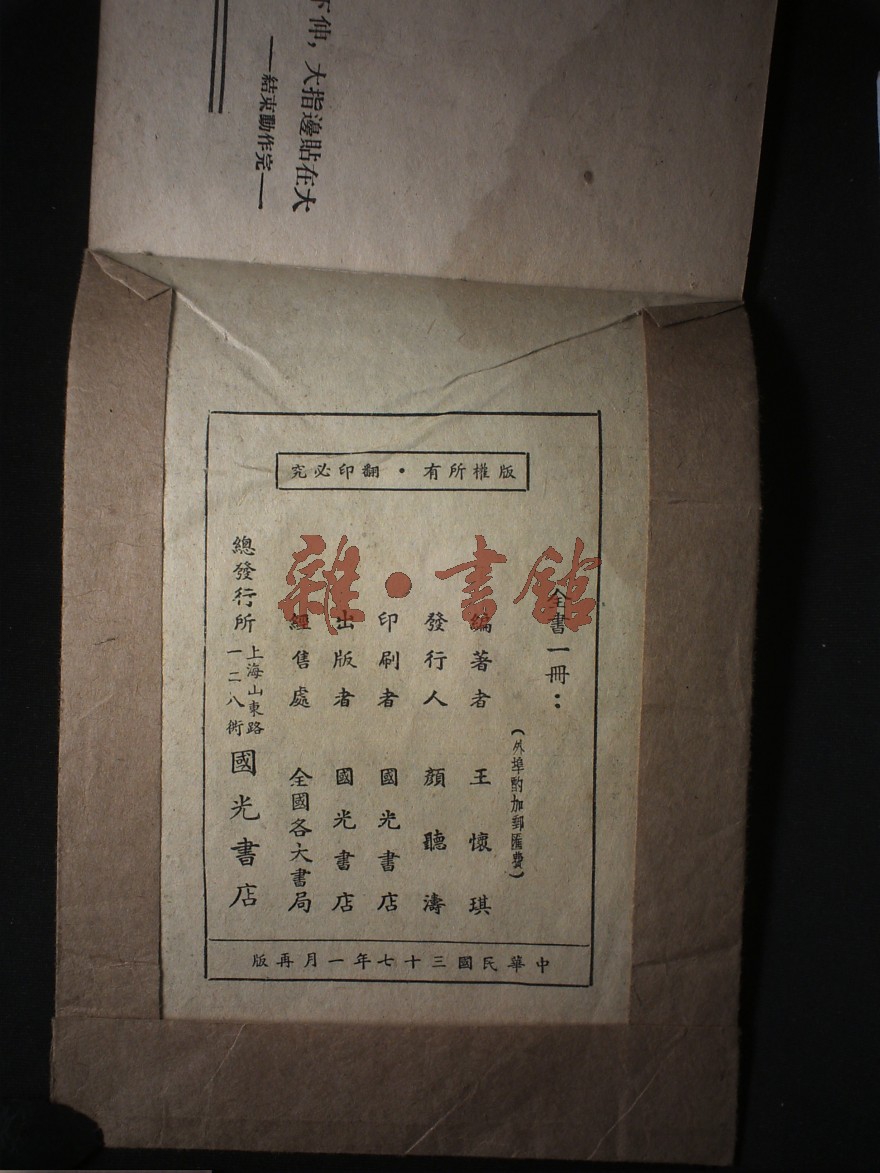 下伸，大指邊貼在大
——結束動作完——
版權所有・翻印必究
全書一冊：
(外埠酌加郵匯費)
編著者 王懷琪
發行人 顏聽濤
印刷者 國光書店
出版者 國光書店
經售處 全國各大書局
總發行所 上海山東路一二八衖 國光書店
中華民國三十七年一月再版
雜・書館